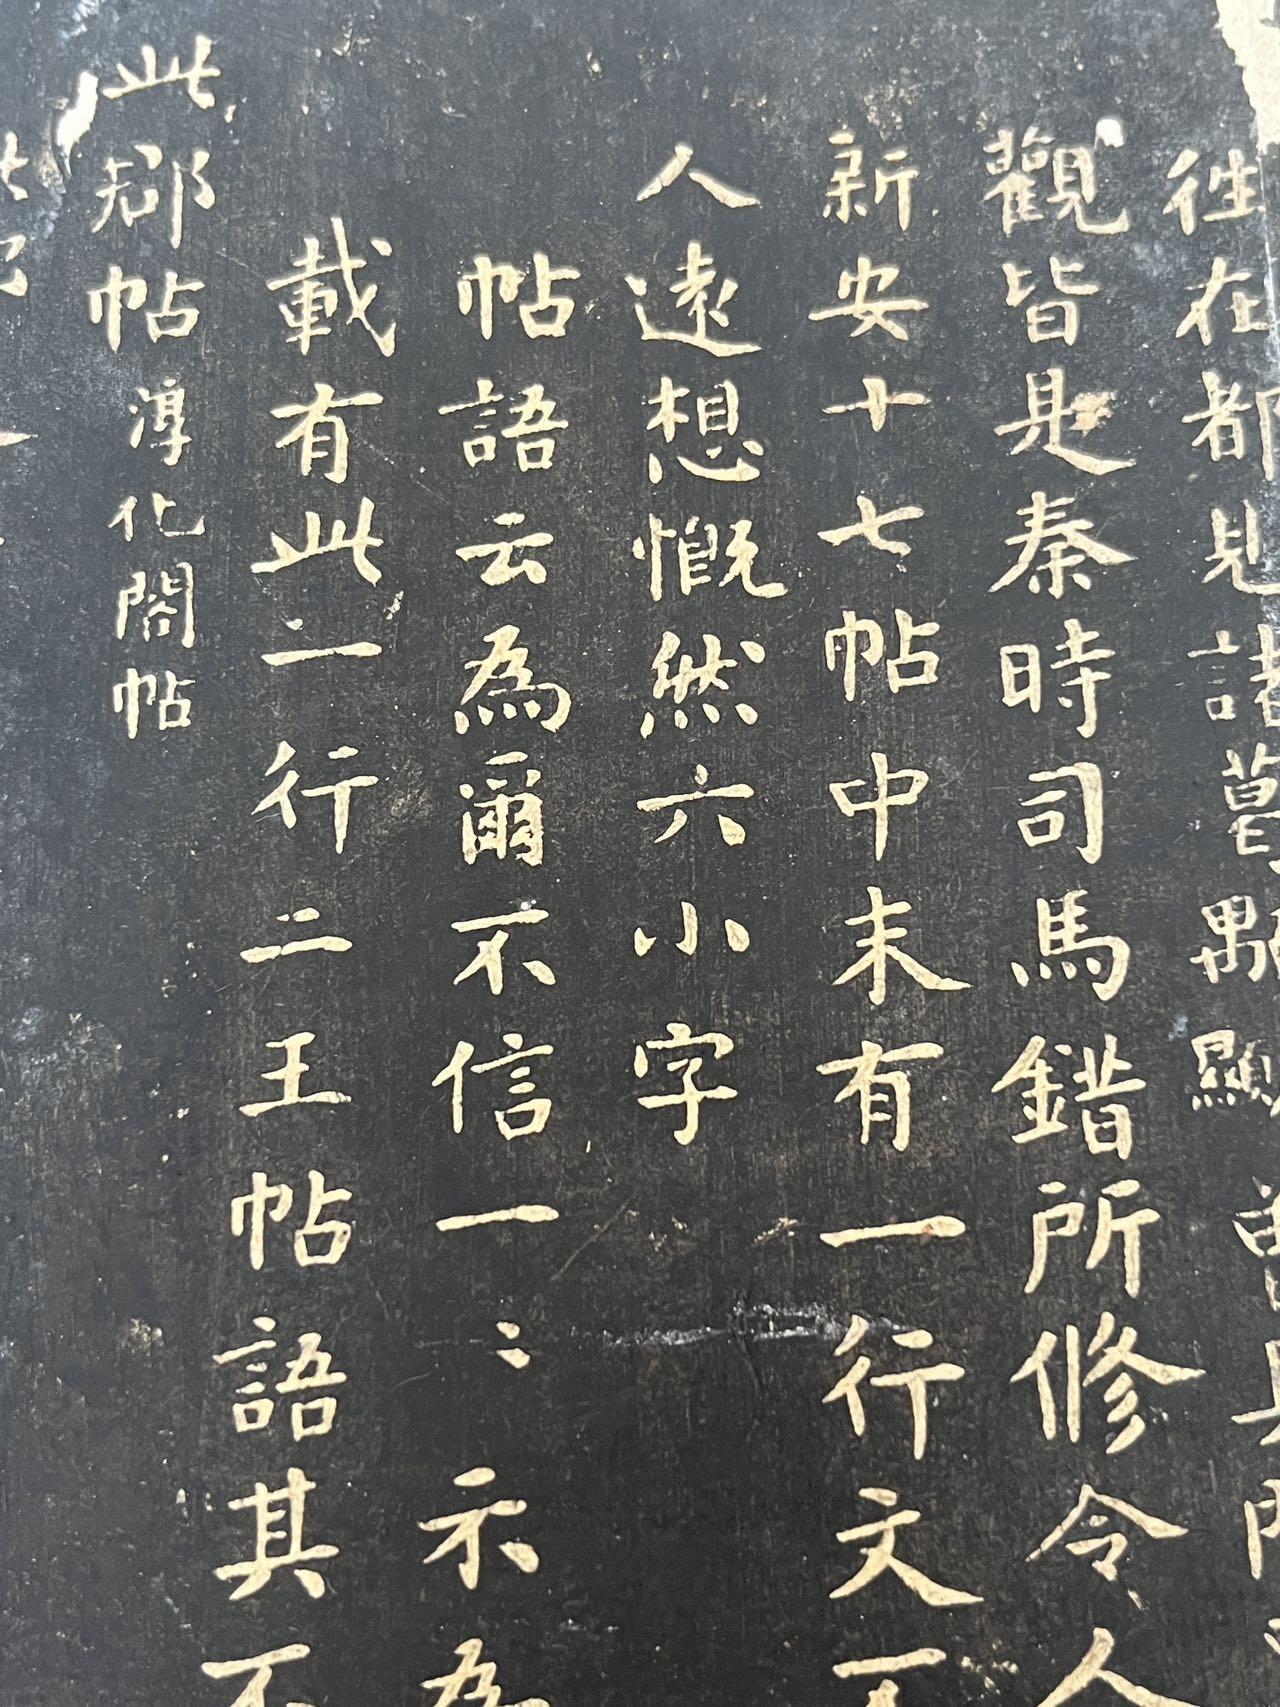 往在都見諸葛顒顯曾具問
觀皆是秦時司馬錯所修令人
新安十七帖中末有一行文不
人遠想慨然六小字
帖語云為爾不信一〻示為
載有此二行二王帖語其不
此郄帖淳化閣帖